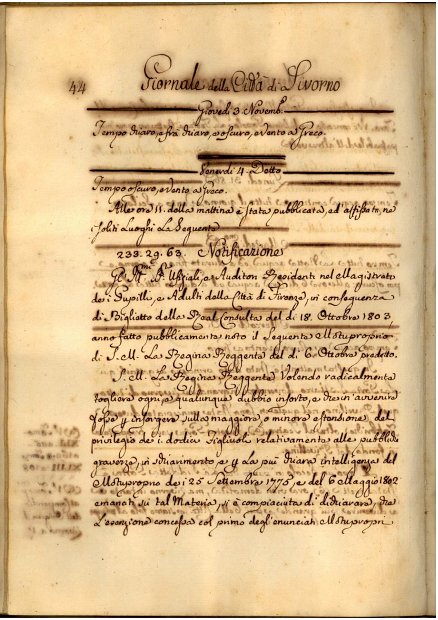 44 Giornale della Città di Livorno
Giovedì 3. Novemb.
Tempo chiaro, e frà chiaro, e oscuro, e vento a Greco.
Venerdì 4. Detto
Tempo oscuro, e vento a Greco.
Alle ore 11. della mattina è stata pubblicata, ed affissata, ne
i soliti Luoghi La Seguente
233. 29. 63. Notificazione
Gl' Ill.mi SS.ri Ufiziali, e Auditori Residenti nel Magistrato
dei Pupilli, e Adulti della Città di Firenze, in conseguenza
di Biglietto della Real Consulta del dì 18. Ottobre 1803,
anno fatto pubblicamente noto il Seguente Motuproprio
di S. M. La Regina Reggente del dì 6. Ottobre predetto.
S. M. La Regina Reggente Volendo radicalmente
togliere ogni, e qualunque dubbio insorto, e che in avvenire
insorgere sulla maggiore, o minore estensione del
privilegio dei dodici figliuoli relativamente alle pubbliche
gravezze, in schiarimento, e La più chiara intelligenza del
Motuproprio dei 25 Settembre 1775, e del 6 Maggio 1802
emanati su tal Materia, si è compiaciuta di dichiarare, che
L'esenzione concessa col primo degl'enunciati Motuproprj